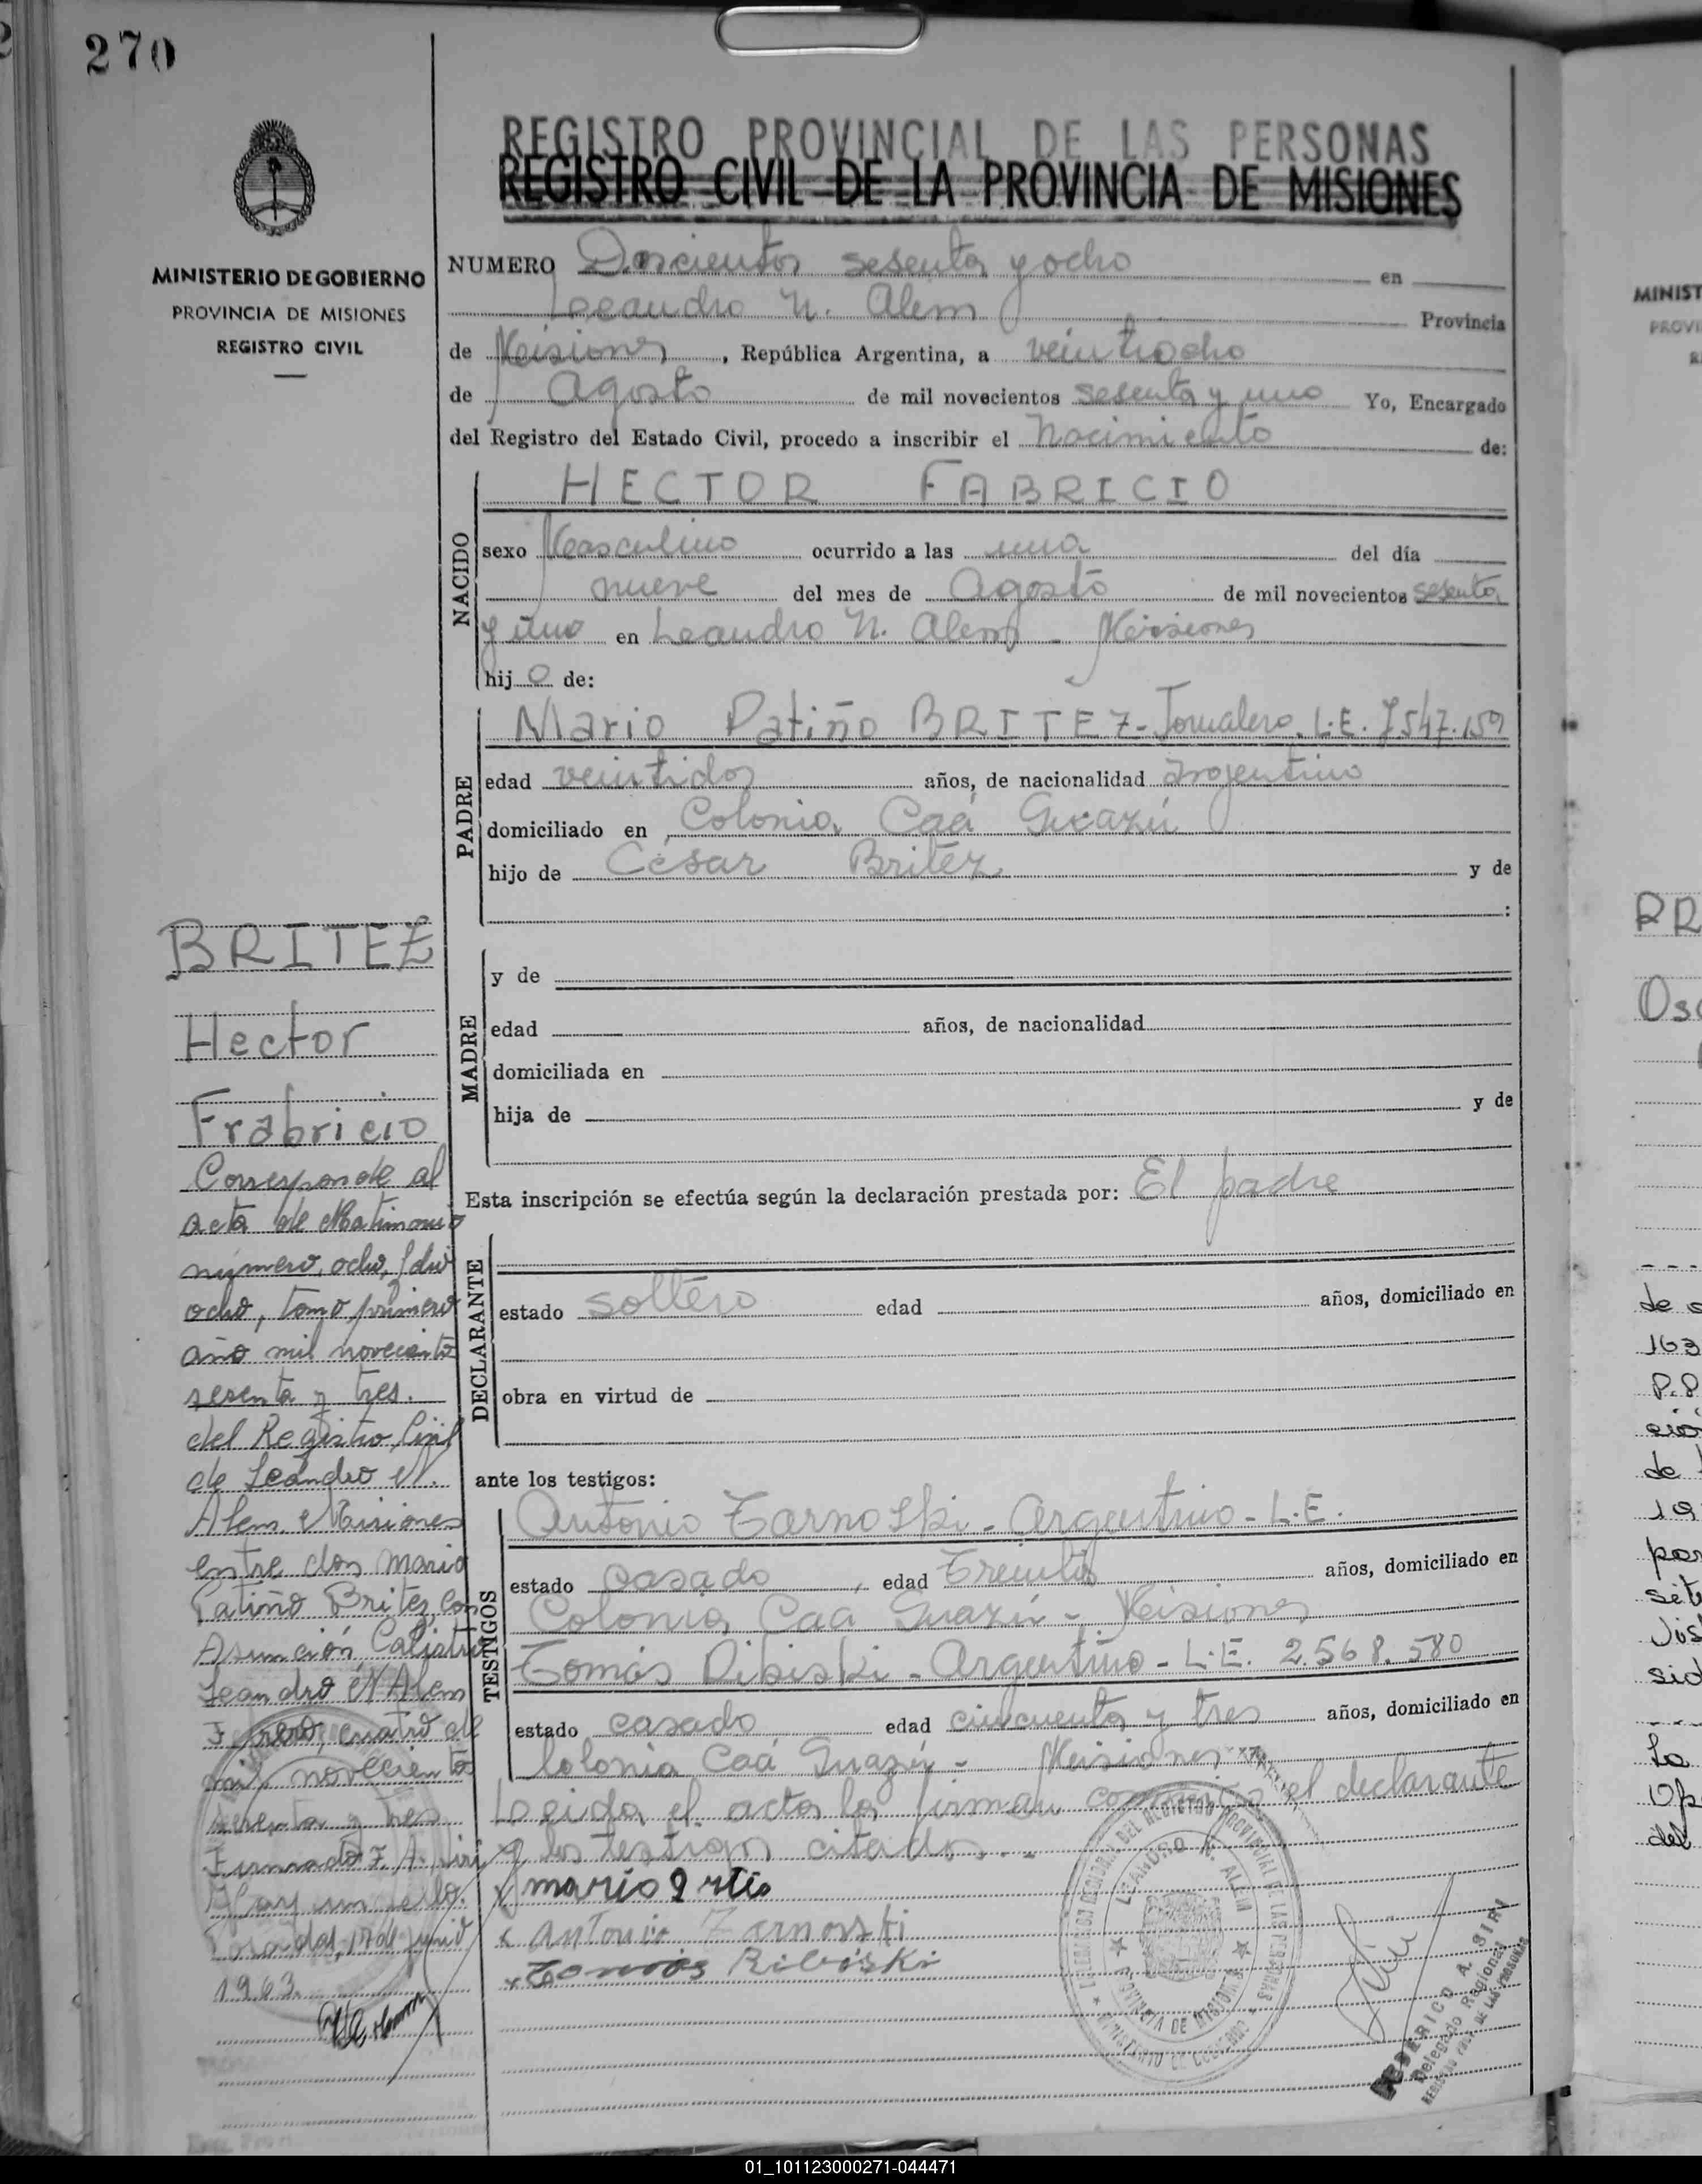 270
MINISTERIO DE GOBIERNO
PROVINCIA DE MISIONES
REGISTRO CIVIL
REGISTRO PROVINCIAL DE LAS PERSONAS
REGISTRO CIVIL DE LA PROVINCIA DE MISIONES
NUMERO Doscientos sesenta y ocho en
Leandro N. Alem Provincia
de Misiones, República Argentina, a veintiocho
de Agosto de mil novecientos sesenta y uno Yo, Encargado
del Registro del Estado Civil, procedo a inscribir el Nacimiento de:
NACIDO
HECTOR FABRICIO
sexo Masculino ocurrido a las una del día
nueve del mes de Agosto de mil novecientos sesenta
y uno en Leandro N. Alem - Misiones
hijo de:
PADRE
Mario Patiño BRITEZ - Jornalero. L.E. 7547.159
edad veintidos años, de nacionalidad Argentino
domiciliado en Colonia Caá Guazú
hijo de César Britez y de
:
MADRE
y de
edad años, de nacionalidad
domiciliada en
hija de y de
Esta inscripción se efectúa según la declaración prestada por: El padre
DECLARANTE
estado soltero edad años, domiciliado en
obra en virtud de
ante los testigos:
TESTIGOS
Antonio Tarnoski - Argentino - L.E.
estado casado, edad Treinta años, domiciliado en
Colonia Caa Guazú - Misiones
Tomás Ribiski - Argentino - L.E. 2.568.580
estado casado edad cincuenta y tres años, domiciliado en
Colonia Caá Guazú - Misiones
Leida el acta la firman conmigo el declarante
y los testigos citados.-
mario
Antonio
Tomás Ribiski
BRITEZ
Hector
Frabricio
Corresponde al
acta de Matimonio
número, ocho,
ocho, tomo primero
año mil novecientos
sesenta y tres.
del Registro Civil
de Leandro N.
Alem. Misiones
entre don Mario
Patiño Britez con
Asunción
Leandro N Alem
Febrero, cuatro de
mil novecientos
sesenta y tres
Firmado F. A. Siri
Hay un sello.
Posadas, 17 de junio
1963.
LEANDRO N. ALEM
PROVINCIA DE MISIONES
FEDERICO A. SIRI
Delegado Regional
REGISTRO PROV. DE LAS PERSONAS
MINIST
PROVI
R
Oso
163
de
19
por
La
del
01_101123000271-044471